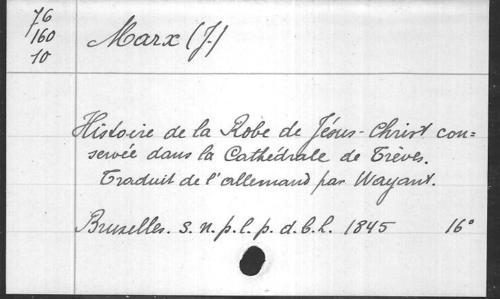 76
160
10
Marx (J.)
Histoire de la Robe de Jésus-Christ con=
servée dans la Cathédrale de Trèves.
Traduit de l'allemand par Wayant.
Bruxelles. s. n. p. l. p. d. b. l. 1845 16°